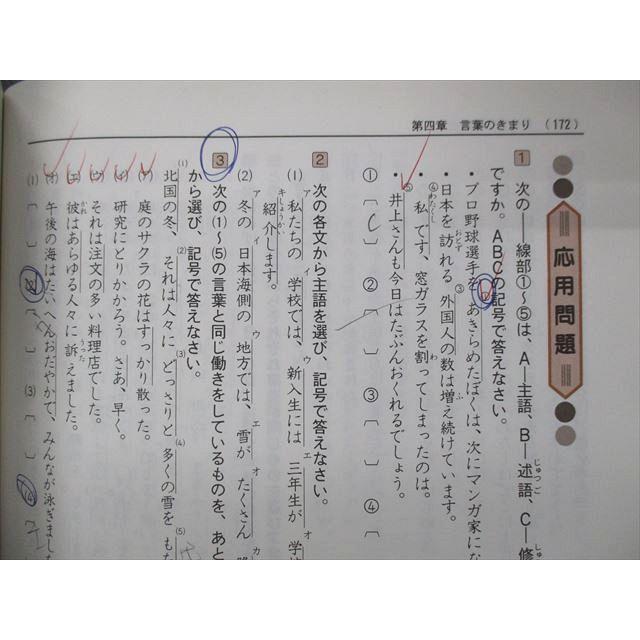 第四章 言葉のきまり (172)
応用問題
1 次の――線部①~⑤は、A―主語、B―述語、C―修
ですか。ABCの記号で答えなさい。
・プロ野球選手をあきらめたぼくは、次にマンガ家にな
・日本を訪れる外国人の数は増え続けています。
・私です、窓ガラスを割ってしまったのは。
・井上さんも今日はたぶんおくれるでしょう。
① ② ③ ④
2 次の各文から主語を選び、記号で答えなさい。
(1) 私たちの 学校では、新入生には 三年生が 学校
紹介します。
(2) 冬の 日本海側の 地方では、雪が たくさん
3 次の(1)~(5)の言葉と同じ働きをしているものを、あと
から選び、記号で答えなさい。
北国の冬、それは人々に どっさりと 多くの雪を もた
(ア) 庭のサクラの花はすっかり散った。
(イ) 研究にとりかかろう。さあ、早く。
(ウ) それは注文の多い料理店でした。
(エ) 彼はあらゆる人々に訴えました。
(オ) 午後の海はたいへんおだやかで、みんなが泳ぎました
(1) (2) (3)